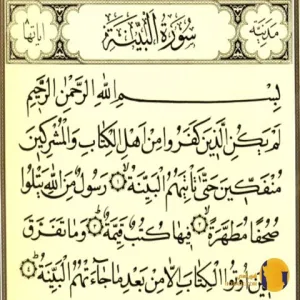 مدنية
سورة البينة
آياتها
بِسْمِ اللهِ الرَّحْمٰنِ الرَّحِيْمِ
لَمْ يَكُنِ الَّذِيْنَ كَفَرُوْا مِنْ اَهْلِ الْكِتَابِ وَالْمُشْرِكِيْنَ
مُنْفَكِّيْنَ حَتّٰى تَأْتِيَهُمُ الْبَيِّنَةُ ۝ رَسُوْلٌ مِنَ اللهِ يَتْلُوْا
صُحُفًا مُطَهَّرَةً ۝ فِيْهَا كُتُبٌ قَيِّمَةٌ ۝ وَمَا تَفَرَّقَ
الَّذِيْنَ اُوْتُوا الْكِتَابَ اِلَّا مِنْ بَعْدِ مَا جَاءَتْهُمُ الْبَيِّنَةُ ۝